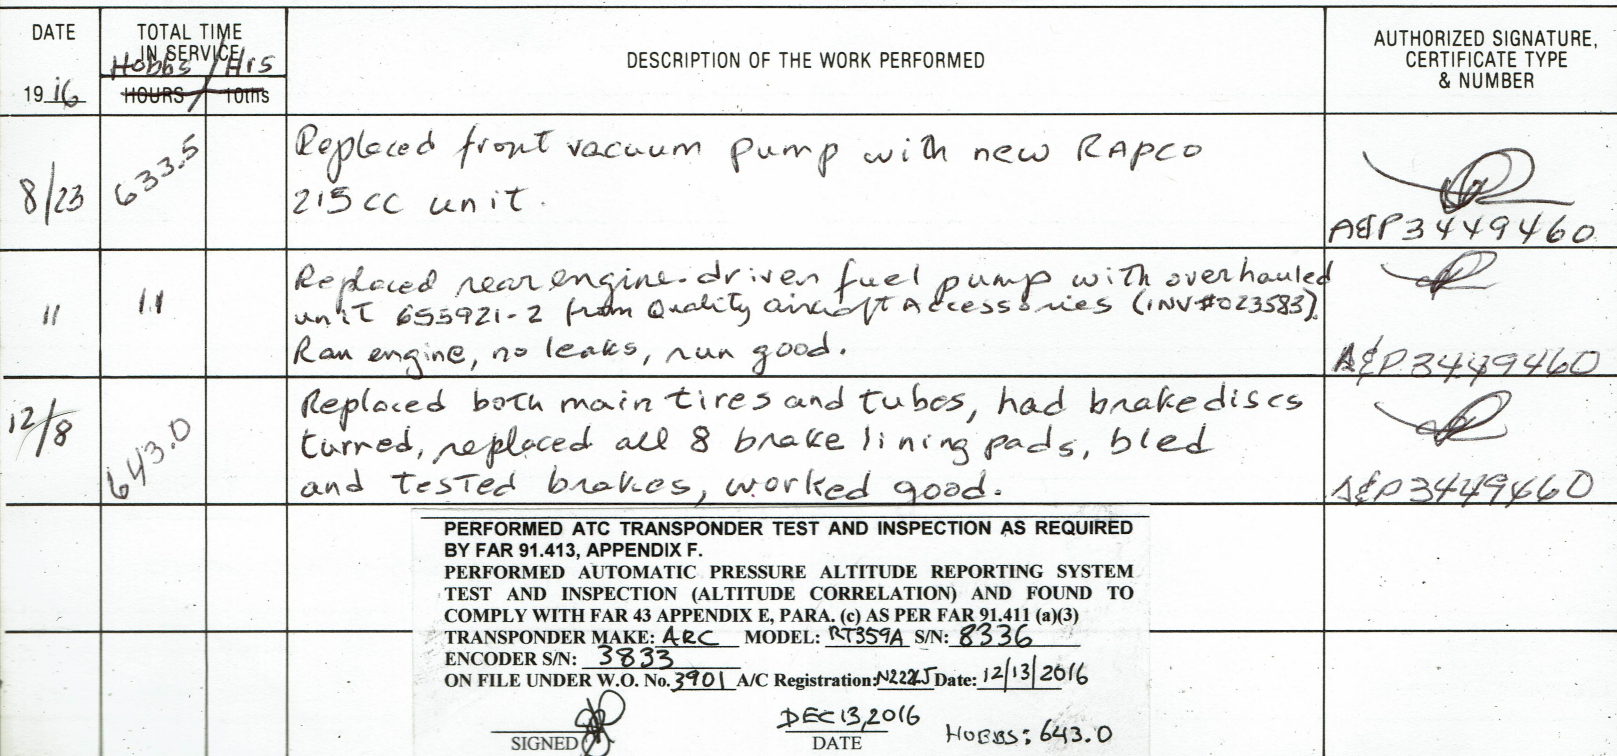 DATE
TOTAL TIME
IN SERVICE
DESCRIPTION OF THE WORK PERFORMED
AUTHORIZED SIGNATURE,
CERTIFICATE TYPE
& NUMBER
Hobbs / Hrs
19 16
HOURS / 10ths
8/23
633.5
Replaced front vacuum pump with new RAPCO
215CC unit.
A&P3449460
"
11
Replaced rear engine-driven fuel pump with overhauled
unit 655921-2 from Quality Aircraft Accessories (INV#023583).
Ran engine, no leaks, run good.
A&P3449460
12/8
643.0
Replaced both main tires and tubes, had brake discs
turned, replaced all 8 brake lining pads, bled
and tested brakes, worked good.
A&P3449460
PERFORMED ATC TRANSPONDER TEST AND INSPECTION AS REQUIRED
BY FAR 91.413, APPENDIX F.
PERFORMED AUTOMATIC PRESSURE ALTITUDE REPORTING SYSTEM
TEST AND INSPECTION (ALTITUDE CORRELATION) AND FOUND TO
COMPLY WITH FAR 43 APPENDIX E, PARA. (c) AS PER FAR 91.411 (a)(3)
TRANSPONDER MAKE: ARC MODEL: RT359A S/N: 8336
ENCODER S/N: 3833
ON FILE UNDER W.O. No. 3901 A/C Registration: Date: 12/13/2016
DEC 13, 2016
HOBBS: 643.0
SIGNED
DATE